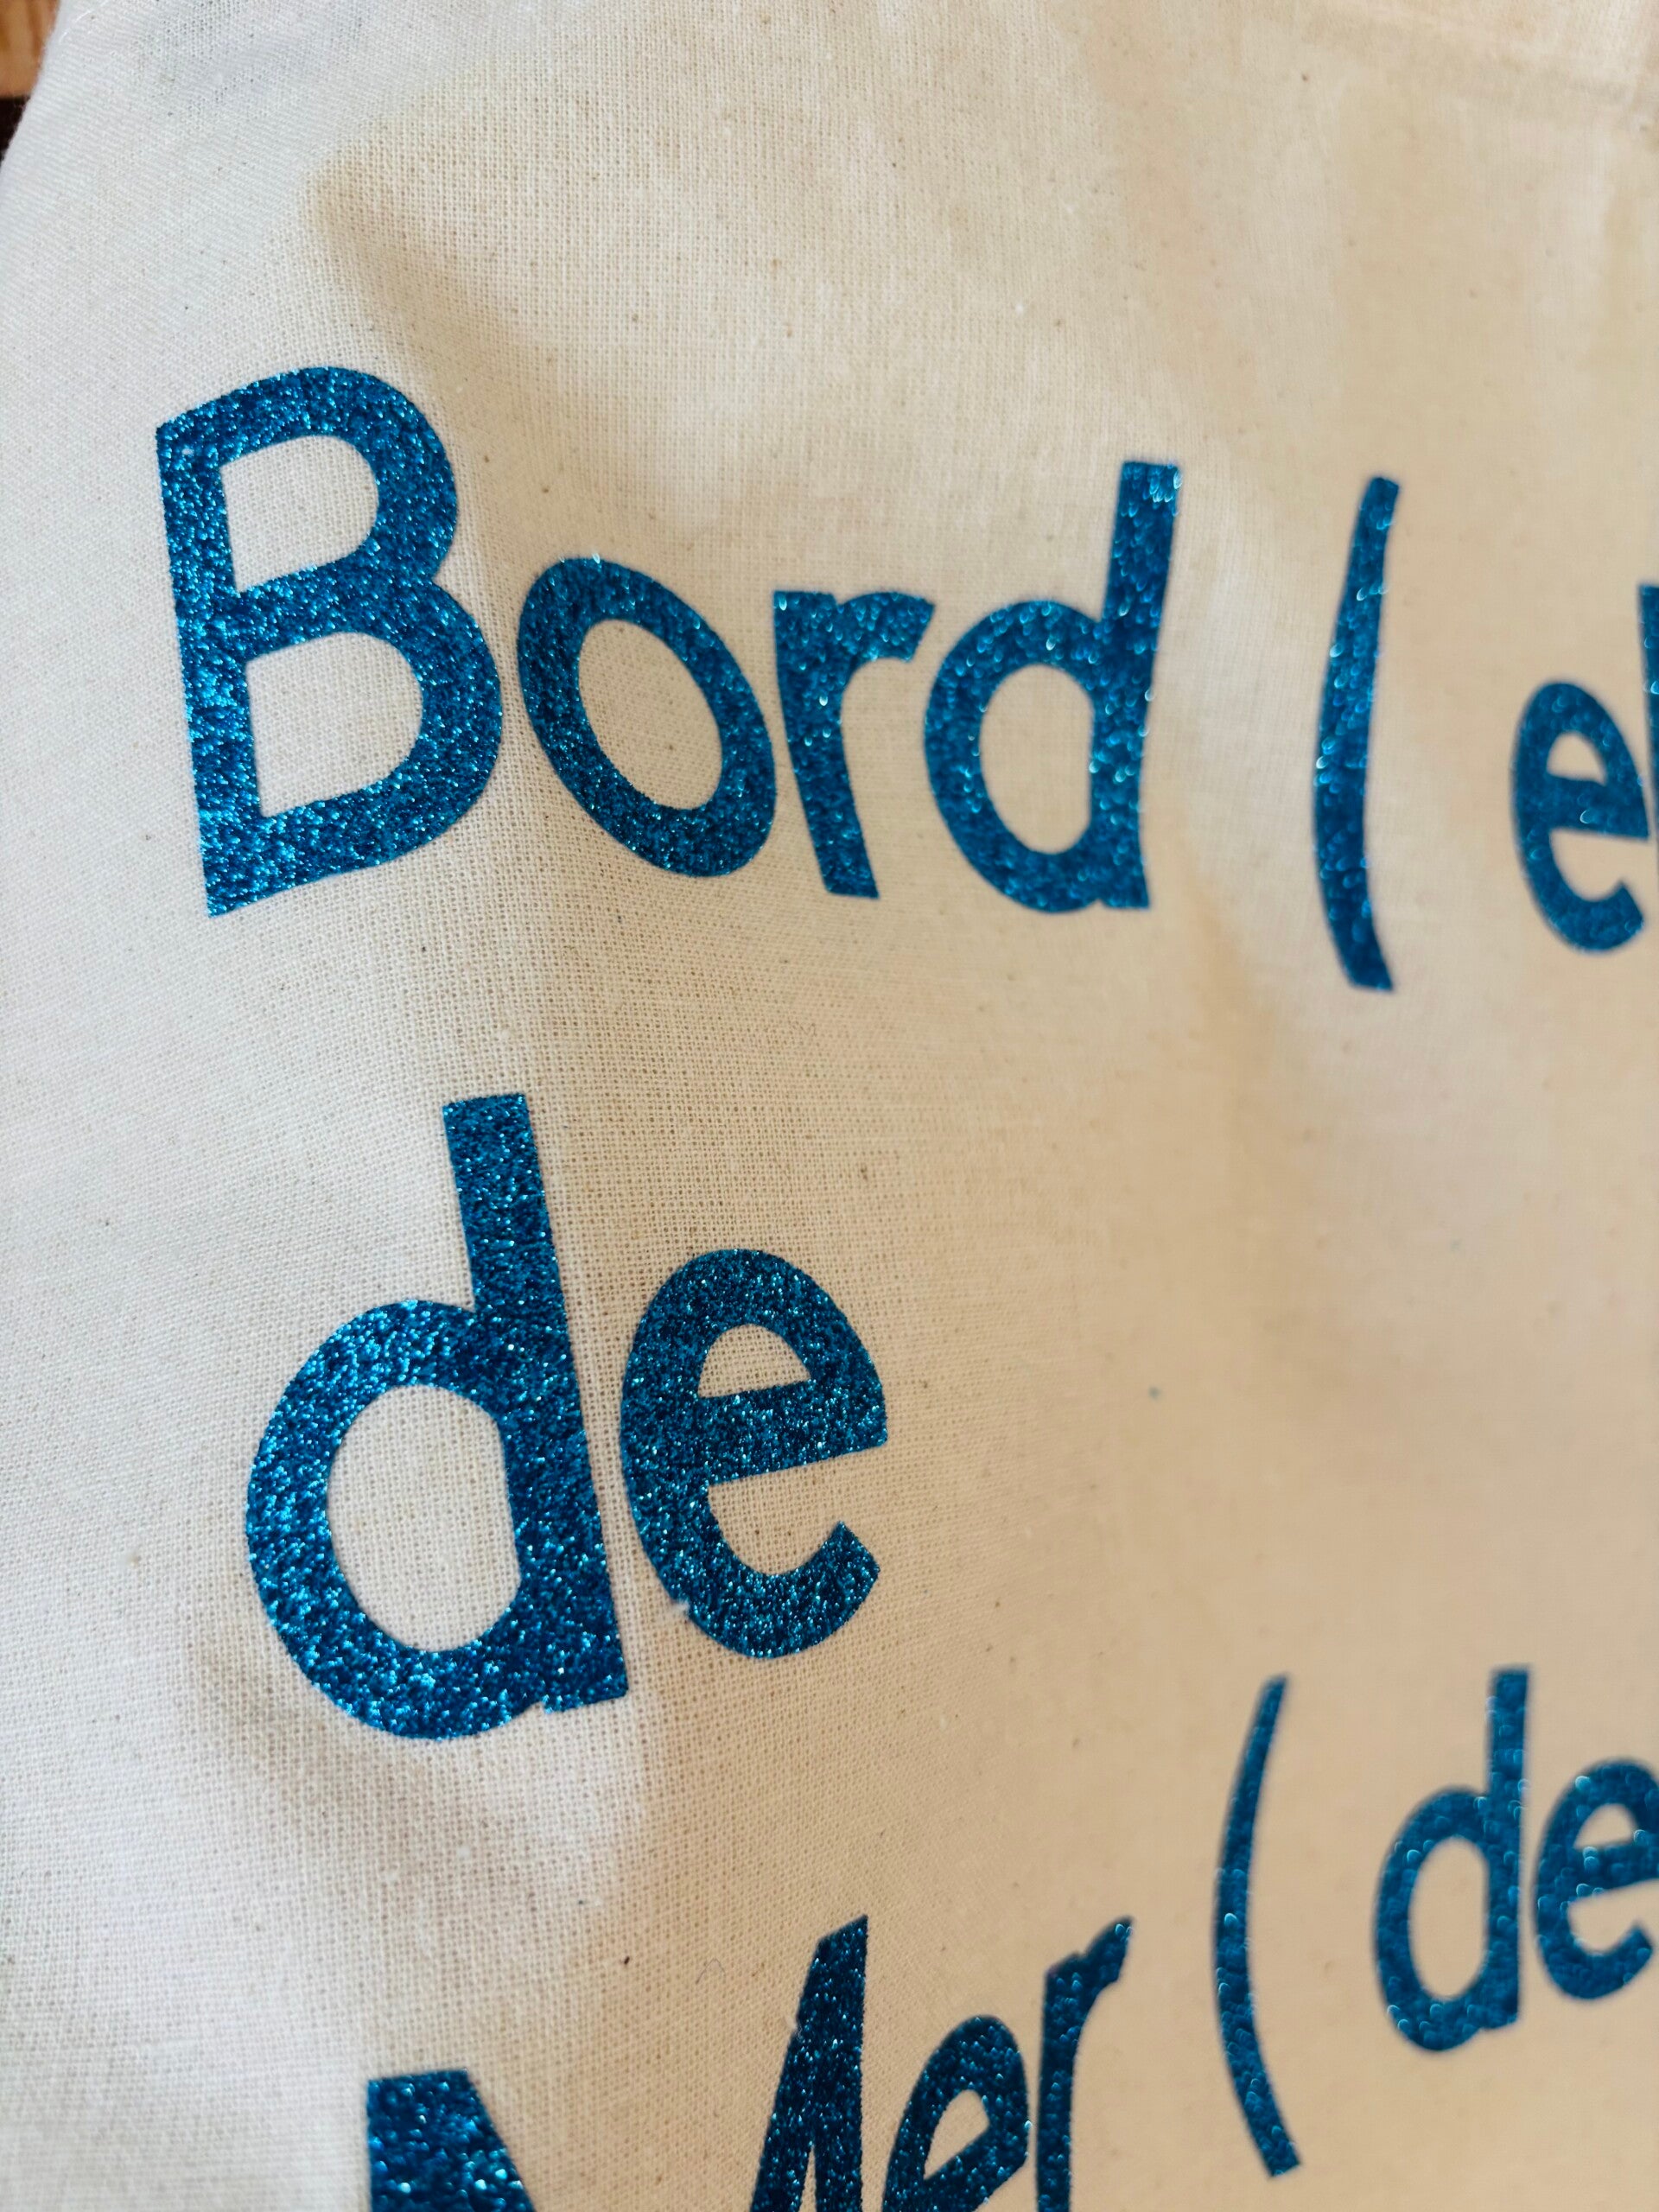 Bord (
de
Mer ( de